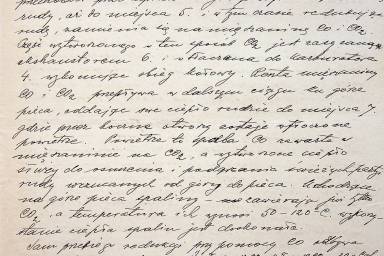 rudy, aż do miejsca 5. i w tym czasie redukuje
rudę, zamienia się na mieszaninę CO i CO₂.
Część wytworzonego w ten sposób CO₂ jest zasysana
ekshaustorem 6. i wtłaczana do karburatora
4. wykonując obieg kołowy. Reszta mieszaniny
CO i CO₂ przepływa w dalszym ciągu ku górze
pieca, oddając swe ciepło rudzie do miejsca 7.
gdzie przez boczne otwory zostaje wtłoczone
powietrze. Powietrze to spala CO zawarte w
mieszaninie na CO₂, a wytworzone ciepło
służy do suszenia i podgrzania świeżych partyj
rudy wrzucanych od góry do pieca. Uchodzące
na górze pieca spaliny zawierają już tylko
CO₂, a temperatura ich wynosi 50-120°C. wykorzy-
stanie ciepła spalin jest doskonałe.
Sam przebieg redukcji przy pomocy CO odbywa